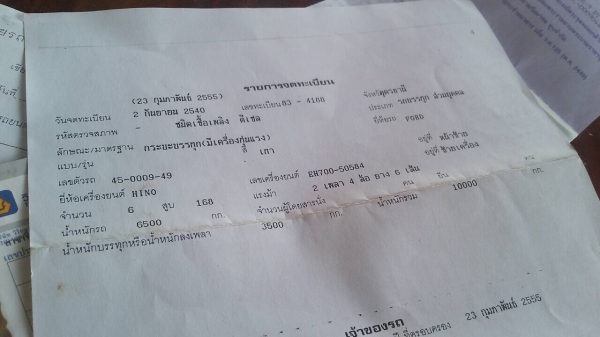 รายการจดทะเบียน
(23 กุมภาพันธ์ 2555)
วันจดทะเบียน 2 กันยายน 2540 เลขทะเบียน 83 - 4168 จังหวัดอุดรธานี
รหัสตรวจสภาพ - ชนิดเชื้อเพลิง ดีเซล ประเภท รถบรรทุก ส่วนบุคคล
ลักษณะ/มาตรฐาน กระบะบรรทุก(มีเครื่องทุ่นแรง) ยี่ห้อรถ FORD
แบบ/รุ่น สี เทา อยู่ที่ หน้าซ้าย
เลขตัวรถ 45-0009-49 เลขเครื่องยนต์ EH700-50584 อยู่ที่ ซ้ายเครื่อง
ยี่ห้อเครื่องยนต์ HINO
จำนวน 6 สูบ 168 แรงม้า 2 เพลา 4 ล้อ ยาง 6 เส้น
น้ำหนักรถ 6500 กก. จำนวนผู้โดยสารนั่ง คน ยืน คน
น้ำหนักบรรทุกหรือน้ำหนักลงเพลา 3500 กก. น้ำหนักรวม 10000 กก.
เจ้าของรถ
ที่ครอบครอง 23 กุมภาพันธ์ 2555